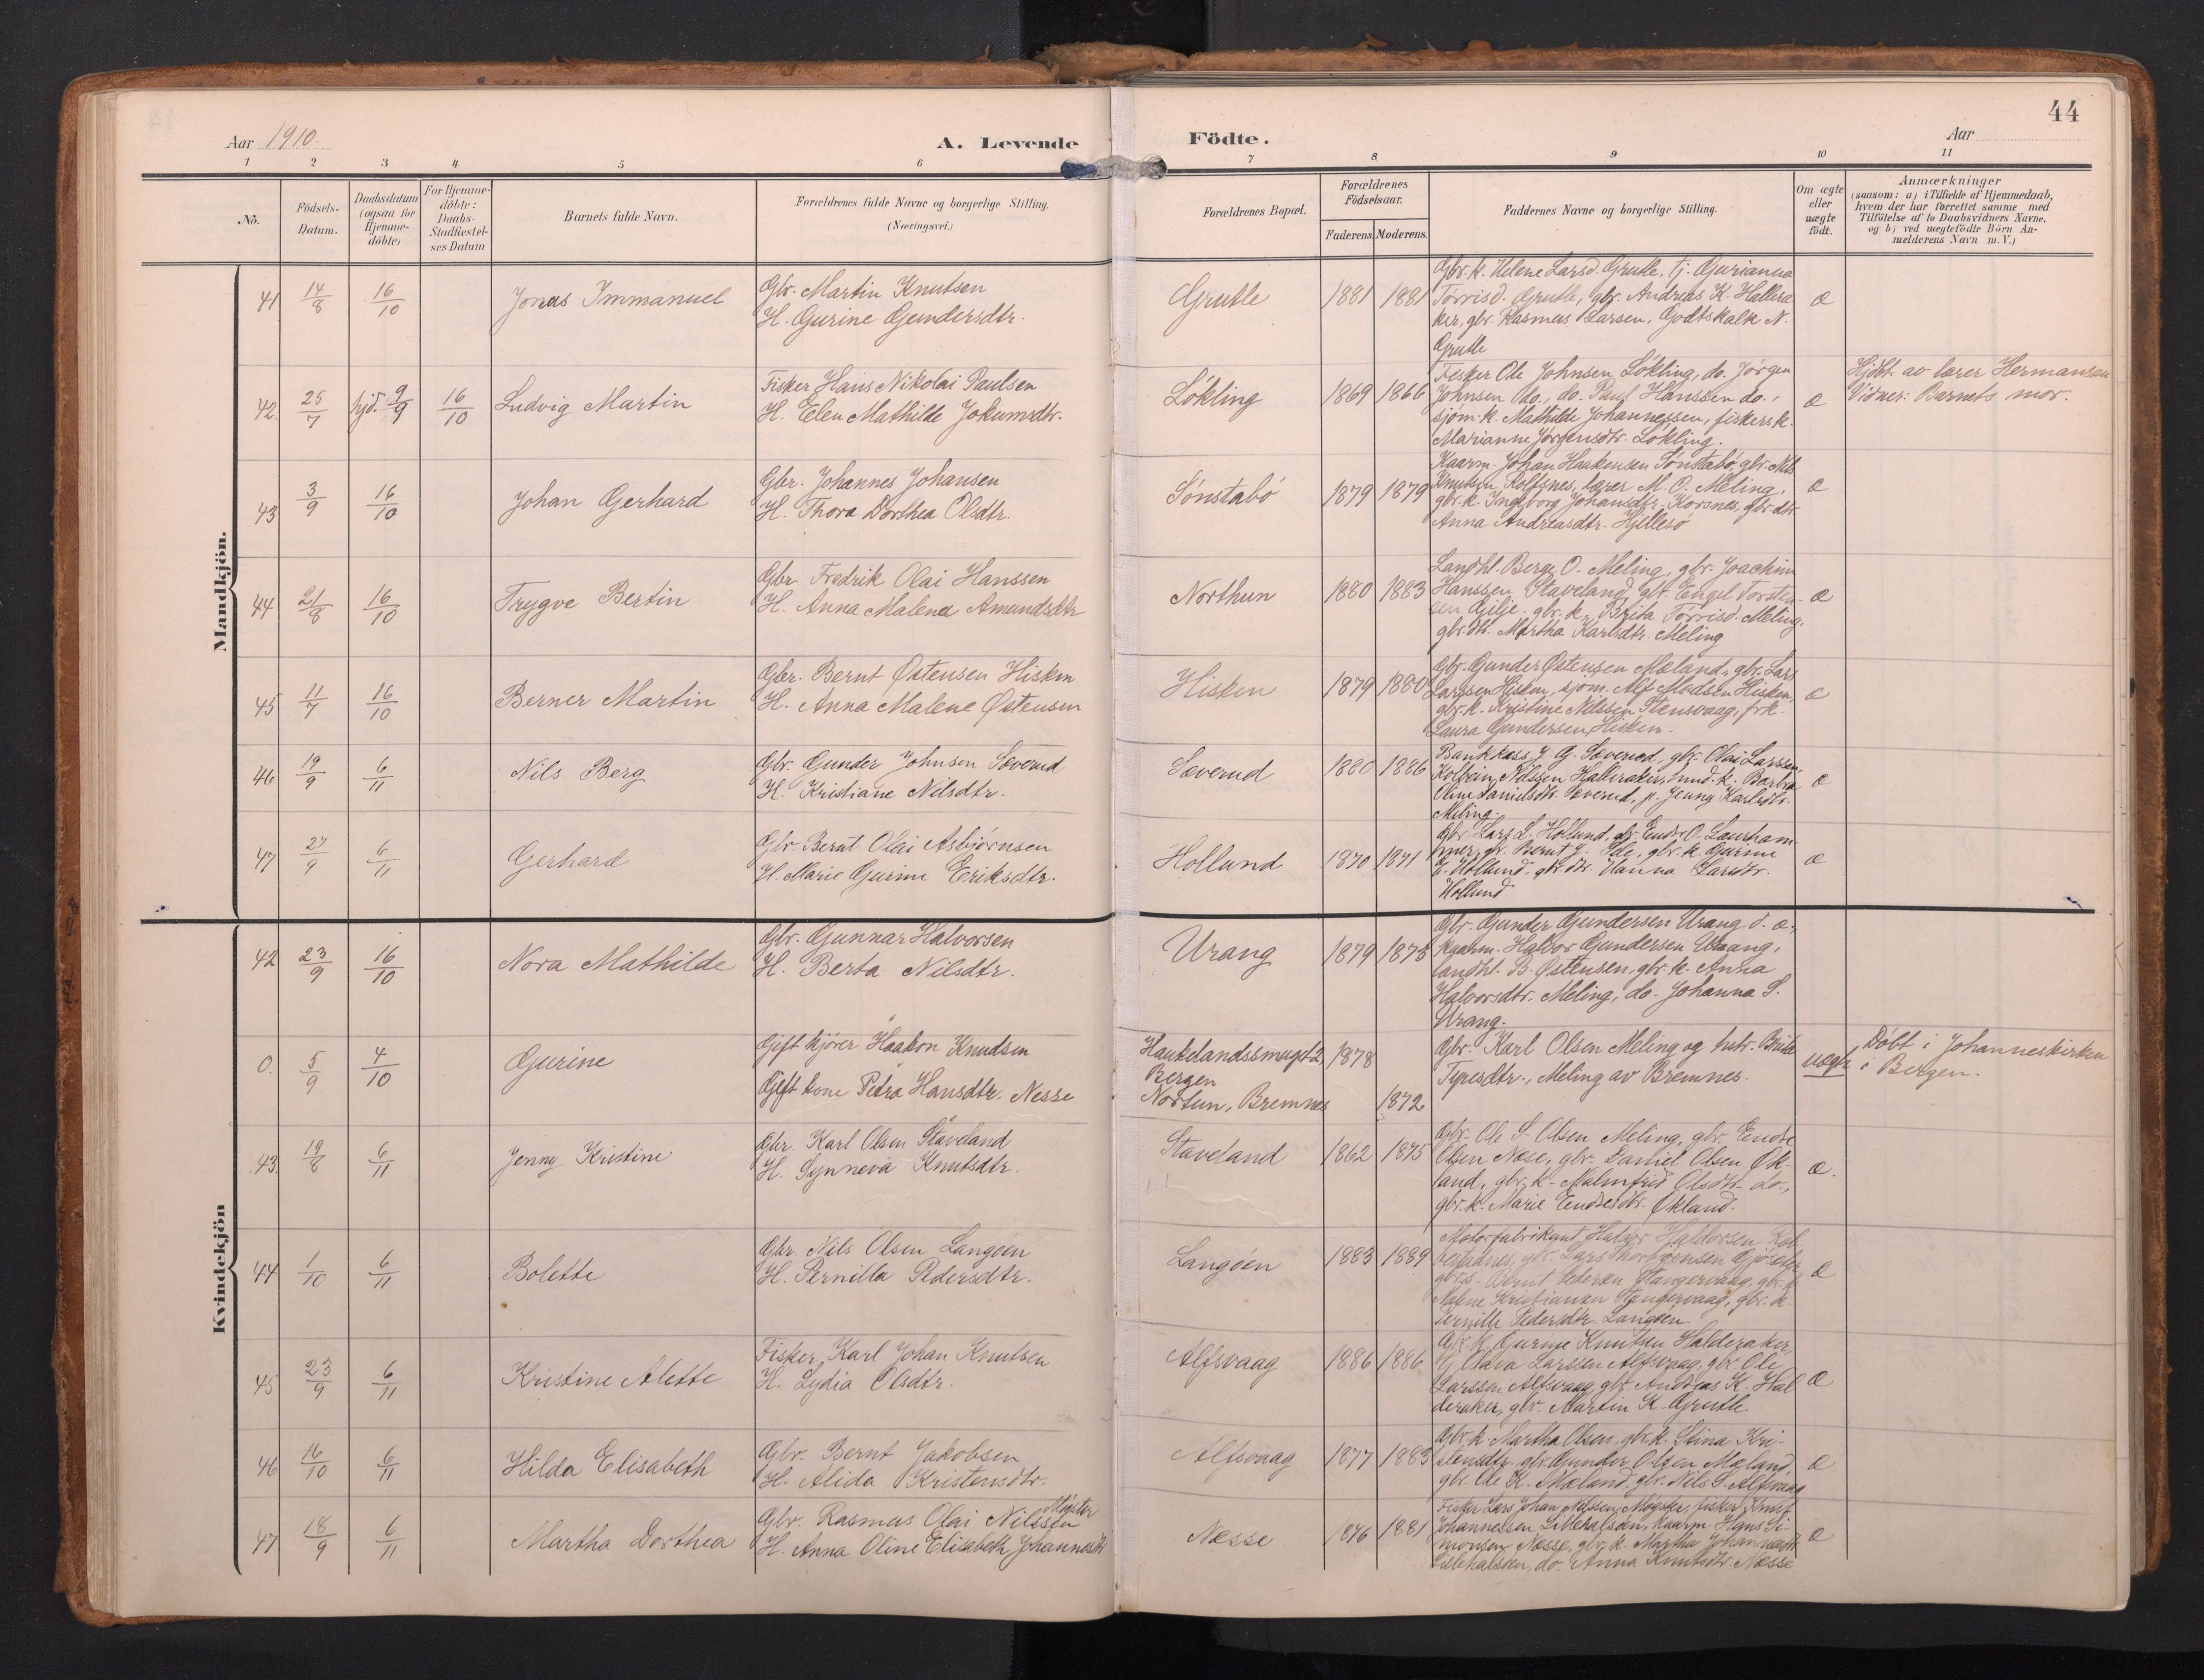 44
Aar 1910.
A. Levende
Födte.
Aar
1 2 3 4 5 6 7 8 9 10 11
No.
Födsels-
Datum.
Daabsdatum
(ogsaa for
Hjemme-
döbte)
For Hjemme-
döbte:
Daabs-
Stadfæstel-
ses Datum
Barnets fulde Navn.
Forældrenes fulde Navne og borgerlige Stilling.
(Næringsvei.)
Forældrenes Bopæl.
Forældrenes
Födselsaar.
Faderens. Moderens.
Faddernes Navne og borgerlige Stilling.
Om ægte
eller
uægte
födt.
Anmærkninger
(saasom: a) i Tilfælde af Hjemmedaab,
hvem der har forrettet samme med
Tilföielse af to Daabsvidners Navne.
og b) ved uægtefödte Börn An-
melderens Navn m. V.)
Mandkjön.
41 14/8 16/10 Jonas Immanuel
Gbr. Martin Knutsen
H. Gurine Gundersdtr.
Grutle 1881 1881
Gbr. k. Helene Larsd. Grutle, tj. Gurianna
Tørrisd. Grutle, gbr. Andreas K. Hallera-
ker, gbr. Rasmus Larsen, Godtskalk N.
Grutle
æ
42 25/7 hjd. 9/9 16/10 Ludvig Martin
Fisker Hans Nikolai Paulsen
H. Elen Mathilde Jokumsdtr.
Løkling 1869 1866
Fisker Ole Johnsen Løkling, do. Jørgen
Johnsen do., do. Paul Hanssen do.,
sjøm. k. Mathilde Johannessen, fiskers k.
Marianne Jørgensdtr. Løkling.
æ
Hjdbt. av lærer Hermansen
Vidner: Barnets mor.
43 3/9 16/10 Johan Gerhard
Gbr. Johannes Johansen
H. Thora Dorthea Olsdtr.
Sønstabø 1879 1879
Kaarm. Johan Haakensen Sønstabø, gbr. Nils
Knutsen Rolfsnes, lærer M. O. Meling,
gbr. k. Ingeborg Johansdtr. Korsnes, gbr. dtr.
Anna Andreasdtr. Hjellesø
æ
44 21/8 16/10 Trygve Bertin
Gbr. Fredrik Olai Hanssen
H. Anna Malena Amundsdtr
Northun 1880 1883
Landhl. Berge O. Meling, gbr. Joachim
Hanssen Staveland, gbr. Engel Torsten-
sen Gilje. gbr. k. Brita Tørrisd. Meling,
gbr. dtr. Martha Karlsdtr. Meling
æ
45 11/7 16/10 Berner Martin
Gbr. Bernt Østensen Hisken
H. Anna Malene Østensen
Hisken 1879 1880
Gbr. Gunder Østensen Mæland, gbr. Lars
Larssen Hisken, sjøm. Alf Madsen Hisken,
gbr. k. Kristine Nilssen Stensvaag, frk.
Laura Gundersen Hisken.
æ
46 19/9 6/11 Nils Berg
Gbr. Gunder Johnsen Sæverud
H. Kristiane Nilsdtr.
Sæverud 1880 1886
Bankkass. J. G. Sæverud, gbr. Olai Larssen,
Kolbein Nilssen Halleraker, k. Barbra
Oline Danielsdtr. Sæverud, p. Jenny Karlsdtr.
Meling.
æ
47 27/9 6/11 Gerhard
Gbr. Bernt Olai Asbjørnsen
H. Marie Gurine Eriksdtr.
Hollund 1870 1871
Gbr. Lars L. Hollund, gbr. Endre O. Laurham-
mer, gbr. Bernt J. Ide, gbr. k. Gurine
E. Hollund, gbr. dtr. Hanna Larsdtr.
Hollund
æ
Kvindekjön
42 23/9 16/10 Nora Mathilde
Gbr. Gunnar Halvorsen
H. Berta Nilsdtr.
Urang 1879 1875
Gbr. Gunder Gundersen Urang d. æ.
kaarm. Halvor Gundersen Uraang,
landhl. B. Østensen, gbr. k. Anna
Halvorsdtr. Meling, do. Johanna S.
Urang.
0. 5/9 4/10 Gurine
Gift kjører Haakon Knudsen
Gift kone Petra Hansdtr. Nesse
Haukelandssmuget 2,
Bergen
Nortun, Bremnes
1878
1872
Gbr. Karl Olsen Meling og hstr. Brita
Tyresdtr., Meling av Bremnes.
uægte
Døbt i Johanneskirken
i Bergen.
43 19/8 6/11 Jenny Kristine
Gbr. Karl Olsen Staveland
H. Synneva Knutsdtr.
Staveland 1862 1875
Gbr. Ole S. Olsen Meling, gbr. Endre
Olsen Næse, gbr. Daniel Olsen Øk-
land, gbr. k. Malmfrid Olsdtr. do.,
gbr. k. Marie Endresdtr. Økland.
æ.
44 1/10 6/11 Bolette
Gbr. Nils Olsen Langøen
H. Pernilla Pedersdtr.
Langøen 1883 1889
Motorfabrikant Haldor Haldorsen
gbr. Lars Thorbjørnsen
Bernt Pedersen Stangervaag, gbr. k.
Malene Kristiansen Stangervaag, gbr. k.
Pernille Pedersdtr. Langøen.
æ
45 23/9 6/11 Kristine Alette
Fisker Karl Johan Knutsen
H. Lydia Olsdtr.
Alfsvaag 1886 1886
Gbr. k. Gurine Knutsen Halderaker,
tj. Olava Larssen Alfsvaag, gbr. Ole
Larssen Alfsvaag, gbr. Andreas K. Hal-
deraker, gbr. Martin K. Grutle.
æ
46 16/10 6/11 Hilda Elisabeth
Gbr. Bernt Jakobsen
H. Alida Kristensdtr.
Alfsvaag 1877 1883
Gbr. k. Martha Olsen, gbr. k. Stina Kri-
stensdtr. gbr. Gunder Olsen Mæland,
gbr. Ole K. Mæland, gbr. Nils S. Alfsvaag
æ
47 18/9 6/11 Martha Dorthea
Gbr. Rasmus Olai Nilssen Møgster
H. Anna Oline Elisabeth Johannesdtr
Næsse 1876 1881
Fisker Lars Johan Nilssen Møgster, fisker Knut
Johannessen Littlehalsøen, kaarm. Hans Si-
monsen Næsse, gbr. k. Martha Johannesdtr
Littlehalsøen, do. Anna Knutsdtr. Næsse
æ